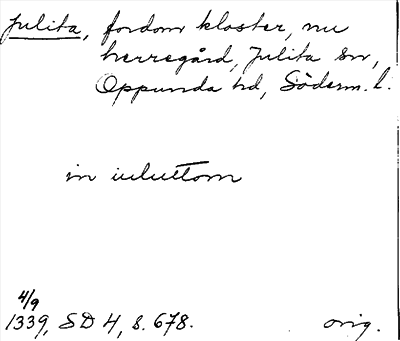 Julita, fordom kloster, nu
herregård, Julita sn,
Oppunda hd, Söderm. l.
in iuluttom
4/9
1339, SD 4, s. 678. orig.